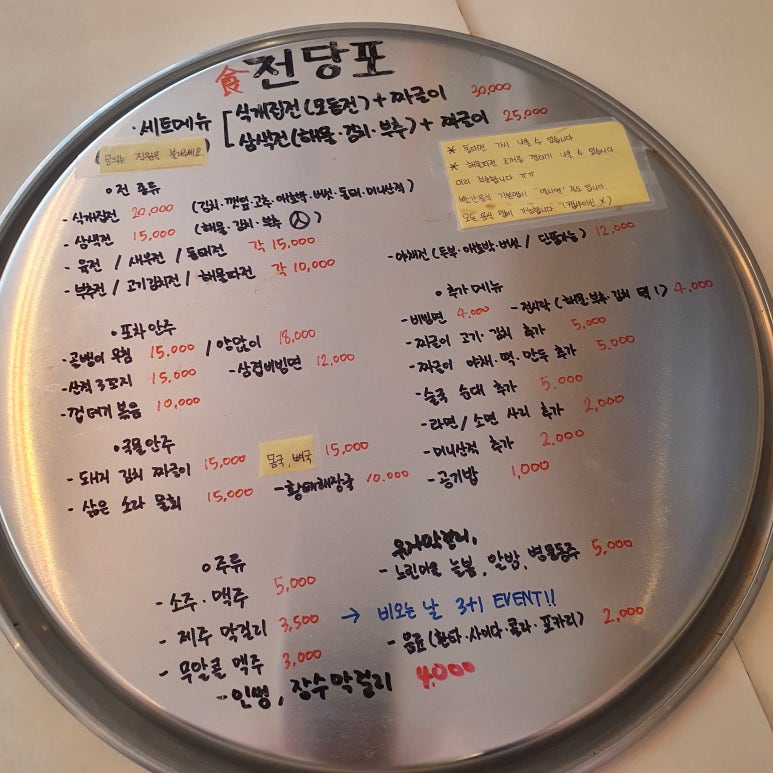 食 전당포
·세트메뉴 [ 식개집전(모둠전) + 짜글이 30,000
삼색전(해물·김치·부추) + 짜글이 25,000
문의는 직원을 불러주세요.
※ 동태전 가시 나올 수 있습니다
※ 해물파전 조개류 껍데기 나올 수 있습니다
미리 적습니다 ㅠㅠ
모든음식 (캡사이신 X)
○ 전 종류
- 식개집전 20,000 (김치·깻잎·고추·애호박·버섯·동태·미니산적)
- 삼색전 15,000 (해물·김치·부추)
- 육전 / 새우전 / 동태전 각 15,000
- 부추전 / 고기김치전 / 해물파전 각 10,000
- 야채전(두부·애호박·버섯 / 단품가능) 12,000
○ 포차안주
- 골뱅이 무침 15,000 / 양많이 18,000
- 산적 3꼬지 15,000 - 삼겹비빔면 12,000
- 껍데기 볶음 10,000
○ 국물안주
- 돼지 김치 짜글이 15,000 몸국, 뼈국 15,000
- 삶은 소라 물회 15,000 - 황태해장국 10,000
○ 추가 메뉴
- 비빔면 4,000 - 전사락 (해물·부추·김치 택 1) 4,000
- 짜글이 고기·김치 추가 5,000
- 짜글이 야채·떡·만두 추가 5,000
- 술국 순대 추가 5,000
- 라면/소면 사리 추가 2,000
- 미니산적 추가 2,000
- 공기밥 1,000
○ 주류
- 소주·맥주 5,000
- 제주 막걸리 3,500 → 비오는 날 3+1 EVENT!!
- 무알콜 맥주 3,000
- 인생, 장수막걸리 4,000
유자막걸리,
- 느린마을 늘봄, 알밤, 병동동주 5,000
- 음료(환타·사이다·콜라·포카리) 2,000